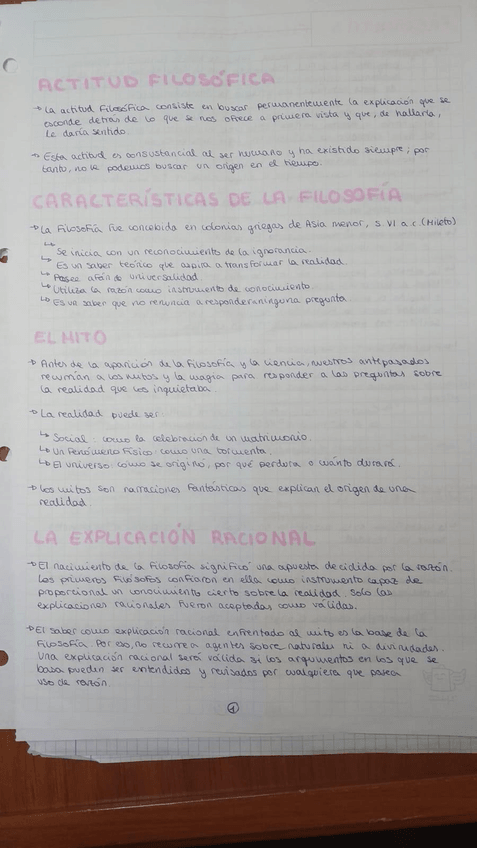 ACTITUD FILOSÓFICA
→ La actitud Filosófica consiste en buscar permanentemente la explicación que se
esconde detrás de lo que se nos ofrece a primera vista y que, de hallarla,
le daría sentido.
→ Esta actitud es consustancial al ser humano y ha existido siempre; por
tanto, no le podemos buscar un origen en el tiempo.
CARACTERÍSTICAS DE LA FILOSOFÍA
→ La Filosofía fue concebida en colonias griegas de Asia menor, s. VI a.c. (Mileto)
↳ Se inicia con un reconocimiento de la ignorancia.
↳ Es un saber teórico que aspira a transformar la realidad.
↳ Posee afán de universalidad.
↳ Utiliza la razón como instrumento de conocimiento.
↳ Es un saber que no renuncia a responder a ninguna pregunta.
EL MITO
→ Antes de la aparición de la Filosofía y la ciencia, nuestros antepasados
recurrían a los mitos y la magia para responder a las preguntas sobre
la realidad que les inquietaba.
→ La realidad puede ser
↳ Social: como la celebración de un matrimonio.
↳ Un Fenómeno Físico: como una tormenta.
↳ El universo: cómo se originó, por qué perdura o cuánto durará.
→ Los mitos son narraciones fantásticas que explican el origen de una
realidad.
LA EXPLICACIÓN RACIONAL
→ El nacimiento de la Filosofía significó una apuesta decidida por la razón.
Los primeros Filósofos confiaron en ella como instrumento capaz de
proporcional un conocimiento cierto sobre la realidad. Solo las
explicaciones racionales fueron aceptadas como válidas.
→ El saber como explicación racional enfrentado al mito es la base de la
Filosofía. Por eso, no recurre a agentes sobrenaturales ni a divinidades.
Una explicación racional será válida si los argumentos en los que se
basa pueden ser entendidos y revisados por cualquiera que posea
uso de razón.
1